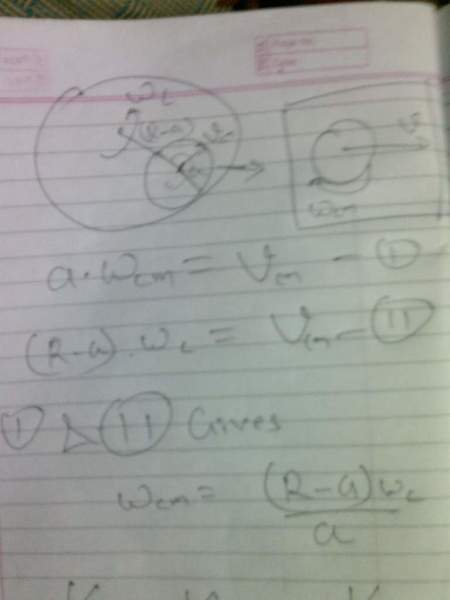 ω_c
(R-a)
V_cm
V
ω_cm
a·ω_cm = V_cm – Ⓘ
(R-a)·ω_c = V_cm – (II)
Ⓘ & (II) Gives
ω_cm = (R-a)ω_c / a